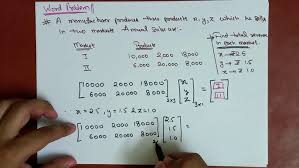 Word Problem
# A manufacture produce three products x, y, z which he sells
in two markets. Annual sales are:
Market Products
I 10,000 2,000 18,000
II 6,000 20,000 8,000
Find total revenue
in each market.
x → 2.5
y → 1.5
z → 1.0
[10000 2000 18000
6000 20000 8000] 2×3 [x
y
z] 3×1 = [I
II]
∴ x = 2.5, y = 1.5 & z = 1.0
[10000 2000 18000
6000 20000 8000] [2.5
1.5
1.0] =